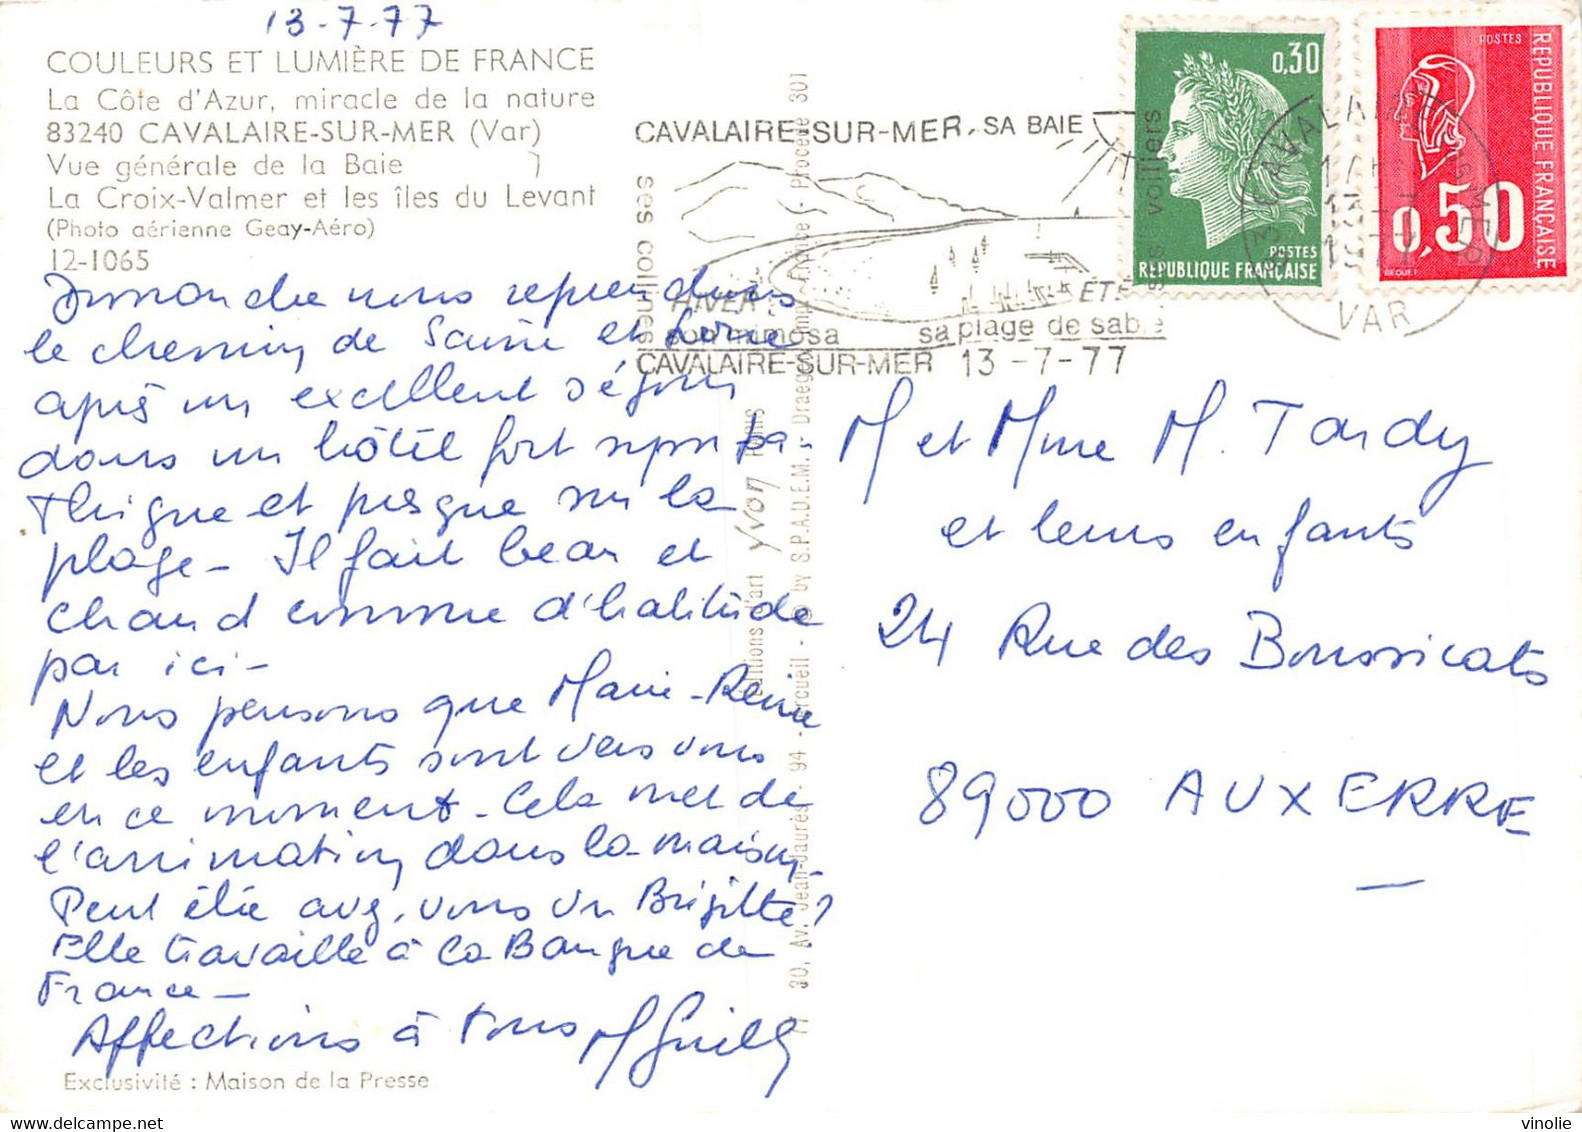 13-7-77
COULEURS ET LUMIÈRE DE FRANCE
La Côte d'Azur, miracle de la nature
83240 CAVALAIRE-SUR-MER (Var)
Vue générale de la Baie
La Croix-Valmer et les îles du Levant
(Photo aérienne Geay-Aéro)
12-1065
Dimanche nous reprendrons
le chemin de Saône et Loire
après un excellent séjour
dans un hôtel fort sympa-
thique et presque sur la
plage - Il fait beau et
chaud comme d'habitude
par ici -
Nous pensons que Marie-Reine
et les enfants sont vers vous
en ce moment - Cela met de
l'animation dans la maison
Peut être avez-vous vu Brigitte ?
Elle travaille à la Banque de
France -
Affections à tous
Exclusivité : Maison de la Presse
11 30, Av. Jean-Jaurès - 94 - Arcueil - © by S.P.A.D.E.M. - Draeger, Imp. France - Procédé 301
éditions d'art YVON Paris
CAVALAIRE-SUR-MER, SA BAIE
ses collines
ses voiliers
HIVER :
son mimosa
ÉTÉ
sa plage de sable
CAVALAIRE-SUR-MER 13 -7-77
0,30
POSTES
REPUBLIQUE FRANÇAISE
POSTES
REPUBLIQUE FRANÇAISE
0,50
BEQUET
83 CAVALAIRE S MER
13-7
1977
VAR
M et Mme M. Tardy
et leurs enfants
24 Rue des Boussicats
89000 AUXERRE
vinolie